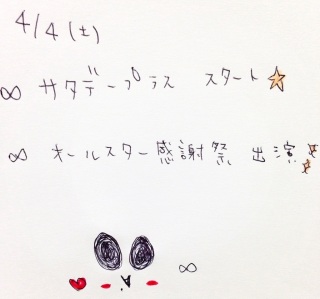 4/4(土)
∞ サタデープラス スタート☆
∞ オールスター感謝祭 出演☆☆
∞